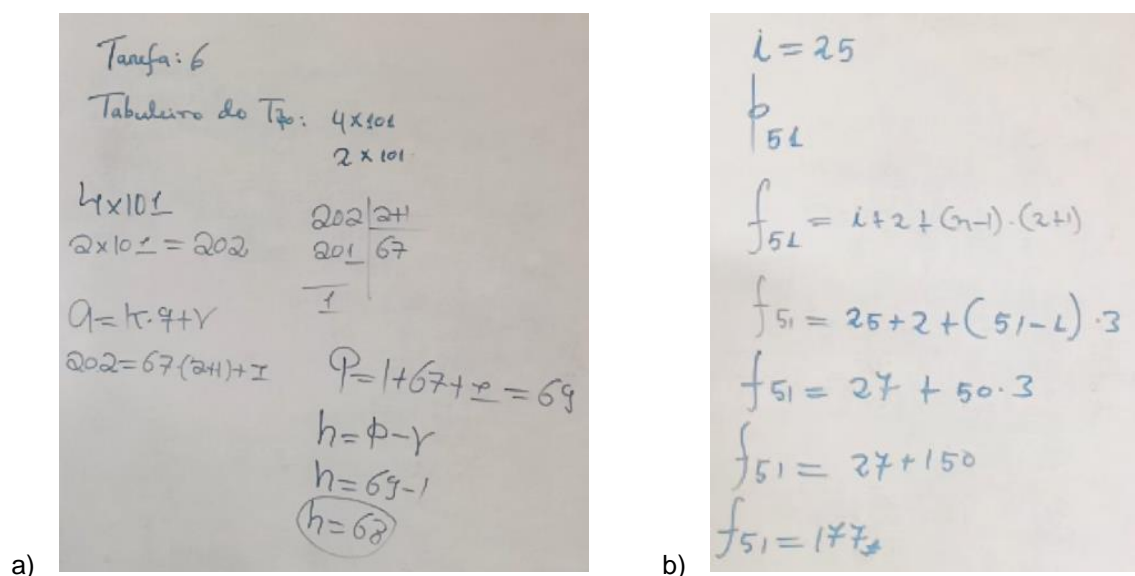 Tarefa: 6
Tabuleiro do Tipo: 4x101
2x101
4x101
2x101 = 202
202 | 2+1
201 | 67
1
a = k.q+r
202 = 67(2+1)+1
P = 1+67+1 = 69
h = p-r
h = 69-1
h = 68
a)
i = 25
p51
f51 = i+2+(n-1).(2+1)
f51 = 25+2+(51-1).3
f51 = 27+50.3
f51 = 27+150
f51 = 177
b)